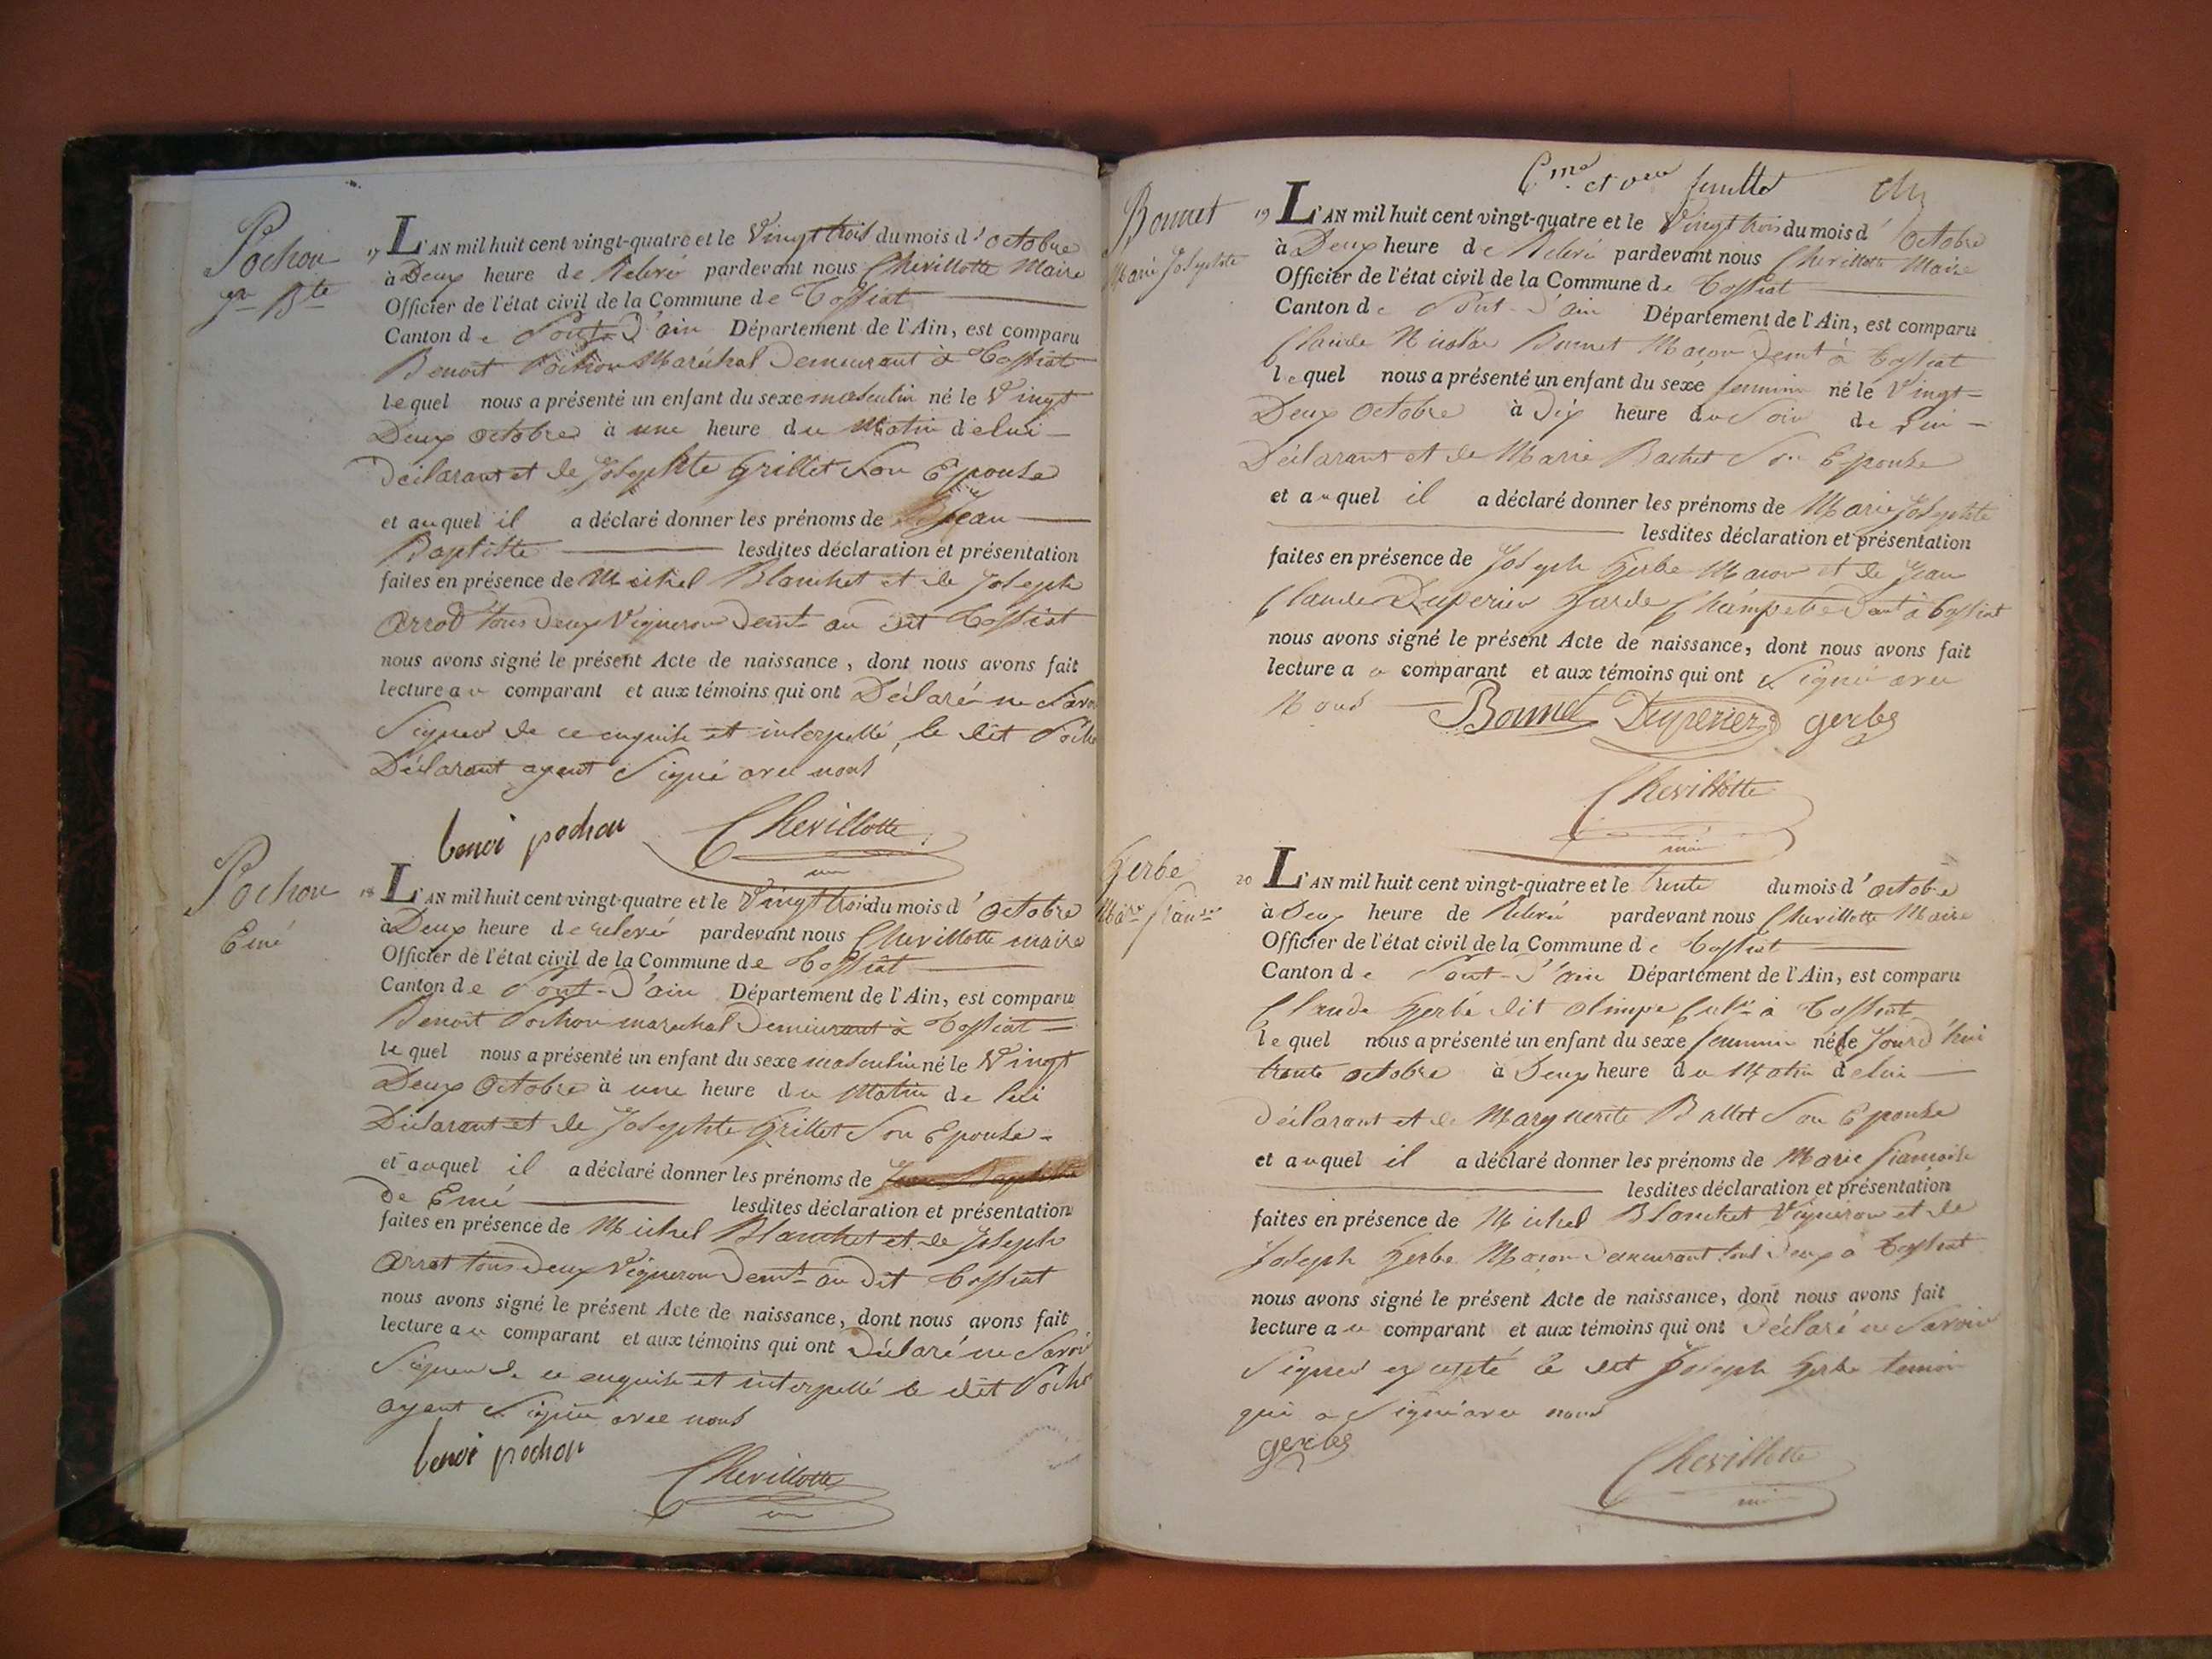 Pochon
Jn Bte
17 L'AN mil huit cent vingt-quatre et le Vingt trois du mois d'octobre
à Deux heure de Relevé pardevant nous Chevillotte Maire
Officier de l'état civil de la Commune de Tossiat
Canton de Pont-d'ain Département de l'Ain, est comparu
Benoit Pochon Maréchal Demeurant à Tossiat
lequel nous a présenté un enfant du sexe masculin né le Vingt
Deux octobre à une heure du Matin de lui
Déclarant et de Josephte Grillet Son Epouse
et auquel il a déclaré donner les prénoms de Jean
Baptiste lesdites déclaration et présentation
faites en présence de Michel Blanchet et de Joseph
Arrod tous Deux Vigneron Demt au dit Tossiat
nous avons signé le présent Acte de naissance, dont nous avons fait
lecture au comparant et aux témoins qui ont Déclaré ne Savoi
Signer de ce enquise et interpellé, le dit Poch
Déclarant ayant Signé avec nous
benoi pochon Chevillotte
Pochon
Emé
18 L'AN mil huit cent vingt-quatre et le Vingt trois du mois d'Octobre
à Deux heure de relevé pardevant nous Chevillotte maire
Officier de l'état civil de la Commune de Tossiat
Canton de Pont-d'ain Département de l'Ain, est comparu
Benoit Pochon marechal Demeurant à Tossiat
lequel nous a présenté un enfant du sexe masculin né le Vingt
Deux Octobre à une heure du Matin de lui
Déclarant et de Josephte Grillet Son Epouse
et auquel il a déclaré donner les prénoms de Jean Baptiste
De Emé lesdites déclaration et présentation
faites en présence de Michel Blanchet et de Joseph
Arrot tous Deux Vigneron Demt au dit Tossiat
nous avons signé le présent Acte de naissance, dont nous avons fait
lecture au comparant et aux témoins qui ont Déclaré ne Savoir
Signer de ce enquise et interpellé le dit Pocho
ayant Signé avec nous
benoi pochon
Chevillotte
feuillet
Bonnet
Marie Josephte
19 L'AN mil huit cent vingt-quatre et le Vingt trois du mois d'Octobre
à Deux heure de Relevé pardevant nous Chevillotte Maire
Officier de l'état civil de la Commune de Tossiat
Canton de Pont-d'ain Département de l'Ain, est comparu
Claude Nicolas Bonnet Maçon Demt à Tossiat
lequel nous a présenté un enfant du sexe feminin né le Vingt=
Deux Octobre à Dix heure du Soir de Lui
Déclarant et de Marie Bachet Son Epouse
et auquel il a déclaré donner les prénoms de Marie Josephte
lesdites déclaration et présentation
faites en présence de Joseph Gerbe Macon et de Jean
Claude Duperier Garde Champetre Demt à Tossiat
nous avons signé le présent Acte de naissance, dont nous avons fait
lecture au comparant et aux témoins qui ont Signé avec
Nous Bonnet Duperier gerbe
Chevillotte
Gerbe
Marie
20 L'AN mil huit cent vingt-quatre et le trente du mois d'octobre
à Deux heure de Relevé pardevant nous Chevillotte Maire
Officier de l'état civil de la Commune de Tossiat
Canton de Pont-d'ain Département de l'Ain, est comparu
Claude Gerbe dit Olimpe à Tossiat
lequel nous a présenté un enfant du sexe feminin né le Jourd'hui
trente octobre à Deux heure du Matin de lui
Déclarant et de Marguerite Ballet Son Epouse
et auquel il a déclaré donner les prénoms de Marie Francoise
lesdites déclaration et présentation
faites en présence de Michel Blanchet Vigneron et de
Joseph Gerbe Maçon Demeurant tous Deux à Tossiat
nous avons signé le présent Acte de naissance, dont nous avons fait
lecture au comparant et aux témoins qui ont Déclaré ne Savoir
Signer excepté le dit Joseph Gerbe temoin
qui a Signé avec nous
gerbe
Chevillotte